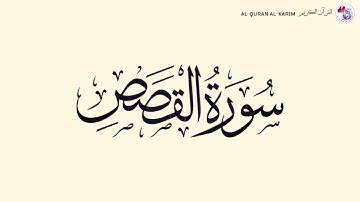 AL-QURAN AL-KARIM القرآن الكريم
سُورَةُ القَصَصِ